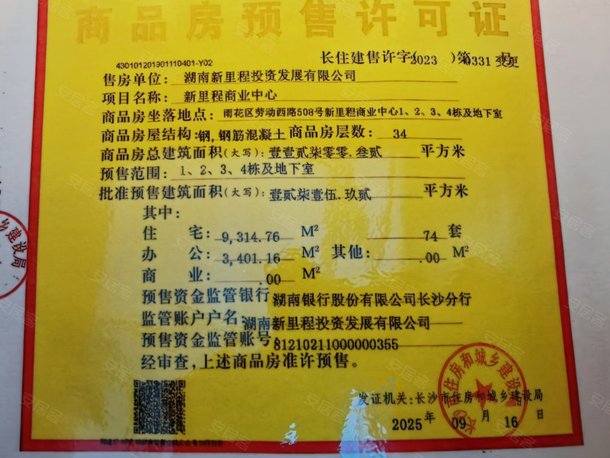 商品房预售许可证
430101201901110401-Y02
长住建售许字(2023)第0331号
变更
售房单位: 湖南新里程投资发展有限公司
项目名称: 新里程商业中心
商品房坐落地点: 雨花区劳动西路508号新里程商业中心1、2、3、4栋及地下室
商品房屋结构: 钢,钢筋混凝土 商品房层数: 34
商品房总建筑面积(大写): 壹壹贰柒零零.叁贰 平方米
预售范围: 1、2、3、4栋及地下室
批准预售建筑面积(大写): 壹贰柒壹伍.玖贰 平方米
其中:
住宅: 9,314.76 M² 74 套
办公: 3,401.16 M² 其他: .00 M²
商业: .00 M²
预售资金监管银行 湖南银行股份有限公司长沙分行
监管账户户名: 湖南新里程投资发展有限公司
预售资金监管账号: 81210211000000355
经审查,上述商品房准许预售。
发证机关: 长沙市住房和城乡建设局
2025年 09月 16日